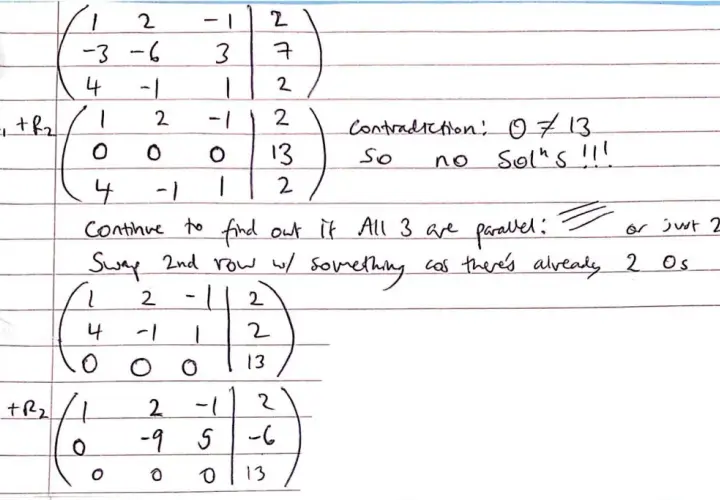 1 2 -1 | 2
-3 -6 3 | 7
4 -1 1 | 2
+R2 1 2 -1 | 2 Contradiction: 0 ≠ 13
0 0 0 | 13 So no Solⁿs !!!
4 -1 1 | 2
Continue to find out if All 3 are parallel: or just 2
Swap 2nd row w/ something cos there's already 2 0s
1 2 -1 | 2
4 -1 1 | 2
0 0 0 | 13
+R2 1 2 -1 | 2
0 -9 5 | -6
0 0 0 | 13